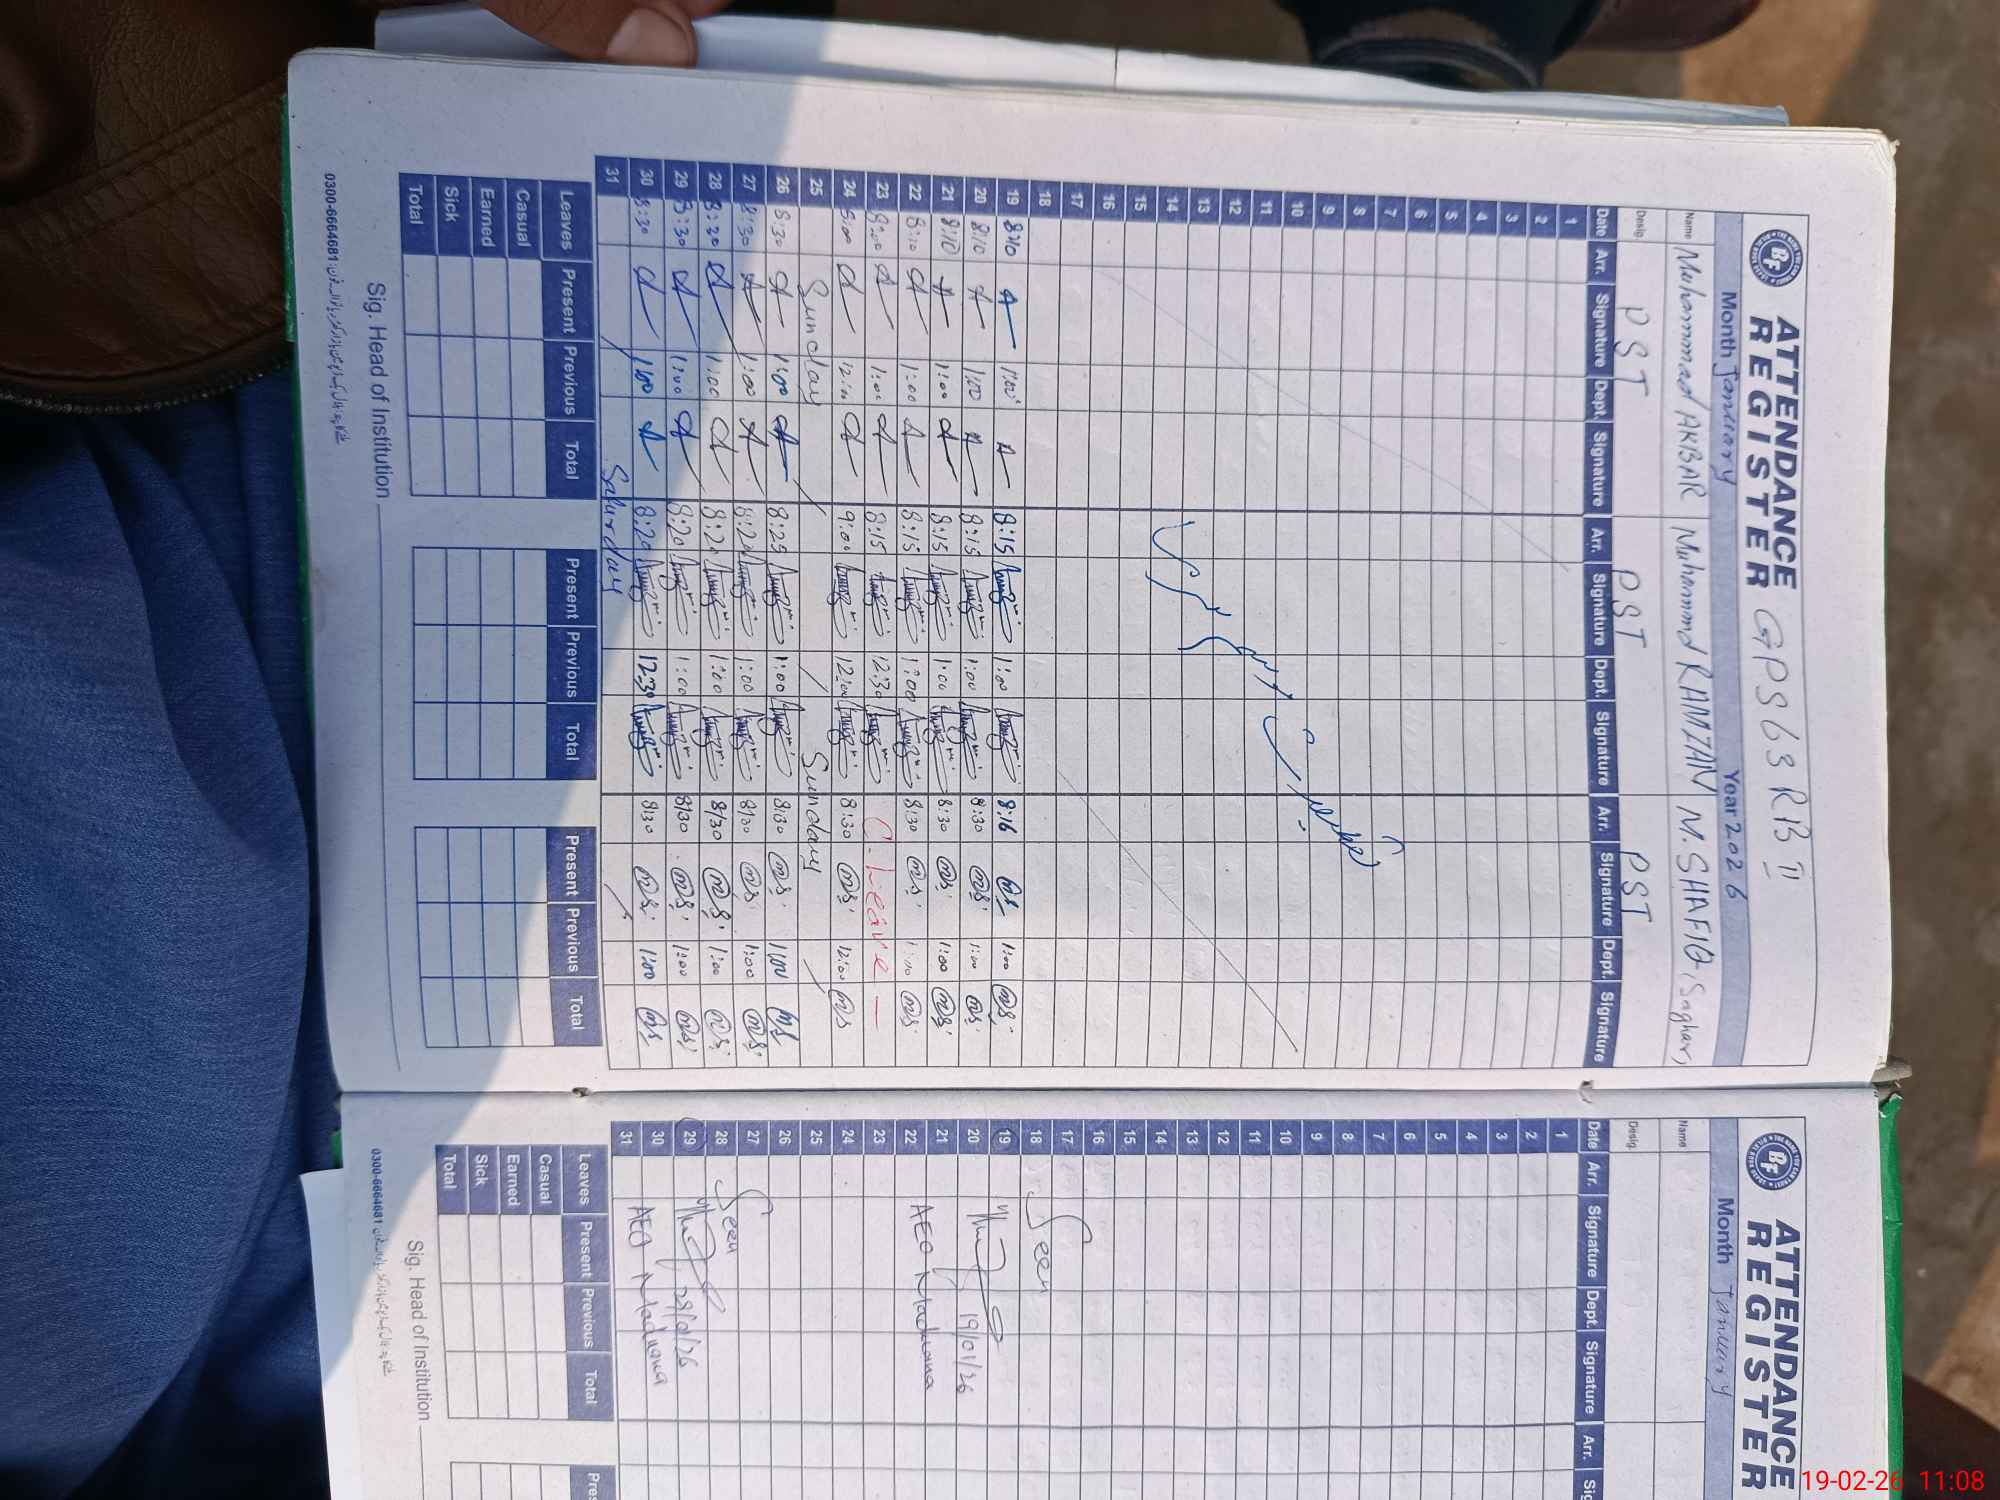 ATTENDANCE
REGISTER
GPS 63 RB II
BF
Month January Year 2026
Name Muhammad AKBAR Muhammad RAMZAN M. SHAFIQ Saghar
Desig PST PST PST
Date Arr. Signature Dept. Signature Arr. Signature Dept. Signature Arr. Signature Dept. Signature
1
2
3
4
5
6
7
8
9
10
11
12
13
14
15
16
17
18
19 8:10 1:00 8:15 1:00 8:16 1:00
20 8:10 1:00 8:15 1:00 8:30 1:00
21 8:10 1:00 8:15 1:00 8:30 1:00
22 8:10 1:00 8:15 1:00 8:30 1:00
23 8:00 1:00 8:15 12:30 C. Leave
24 8:00 12:00 9:00 12:00 8:30 12:00
25 Sunday Sunday
26 8:30 1:00 8:25 1:00 8:30 1:00
27 8:30 1:00 8:20 1:00 8:30 1:00
28 8:30 1:00 8:20 1:00 8:30 1:00
29 8:30 1:00 8:20 1:00 8:30 1:00
30 8:30 1:00 8:20 12:30 8:30 1:00
31 Saturday
Leaves Present Previous Total Present Previous Total Present Previous Total
Casual
Earned
Sick
Total
Sig. Head of Institution
0300-6664681
ATTENDANCE
REGISTER
BF
Month January
Name
Desig
Date Arr. Signature Dept. Signature Arr.
1
2
3
4
5
6
7
8
9
10
11
12
13
14
15
16
17
18 Seen
19
20 19/01/26
21
22 AEO
23
24
25
26
27
28 Seen
29 29/01/26
30 AEO
31
Leaves Present Previous Total
Casual
Earned
Sick
Total
Sig. Head of Institution
0300-6664681
19-02-26 11:08